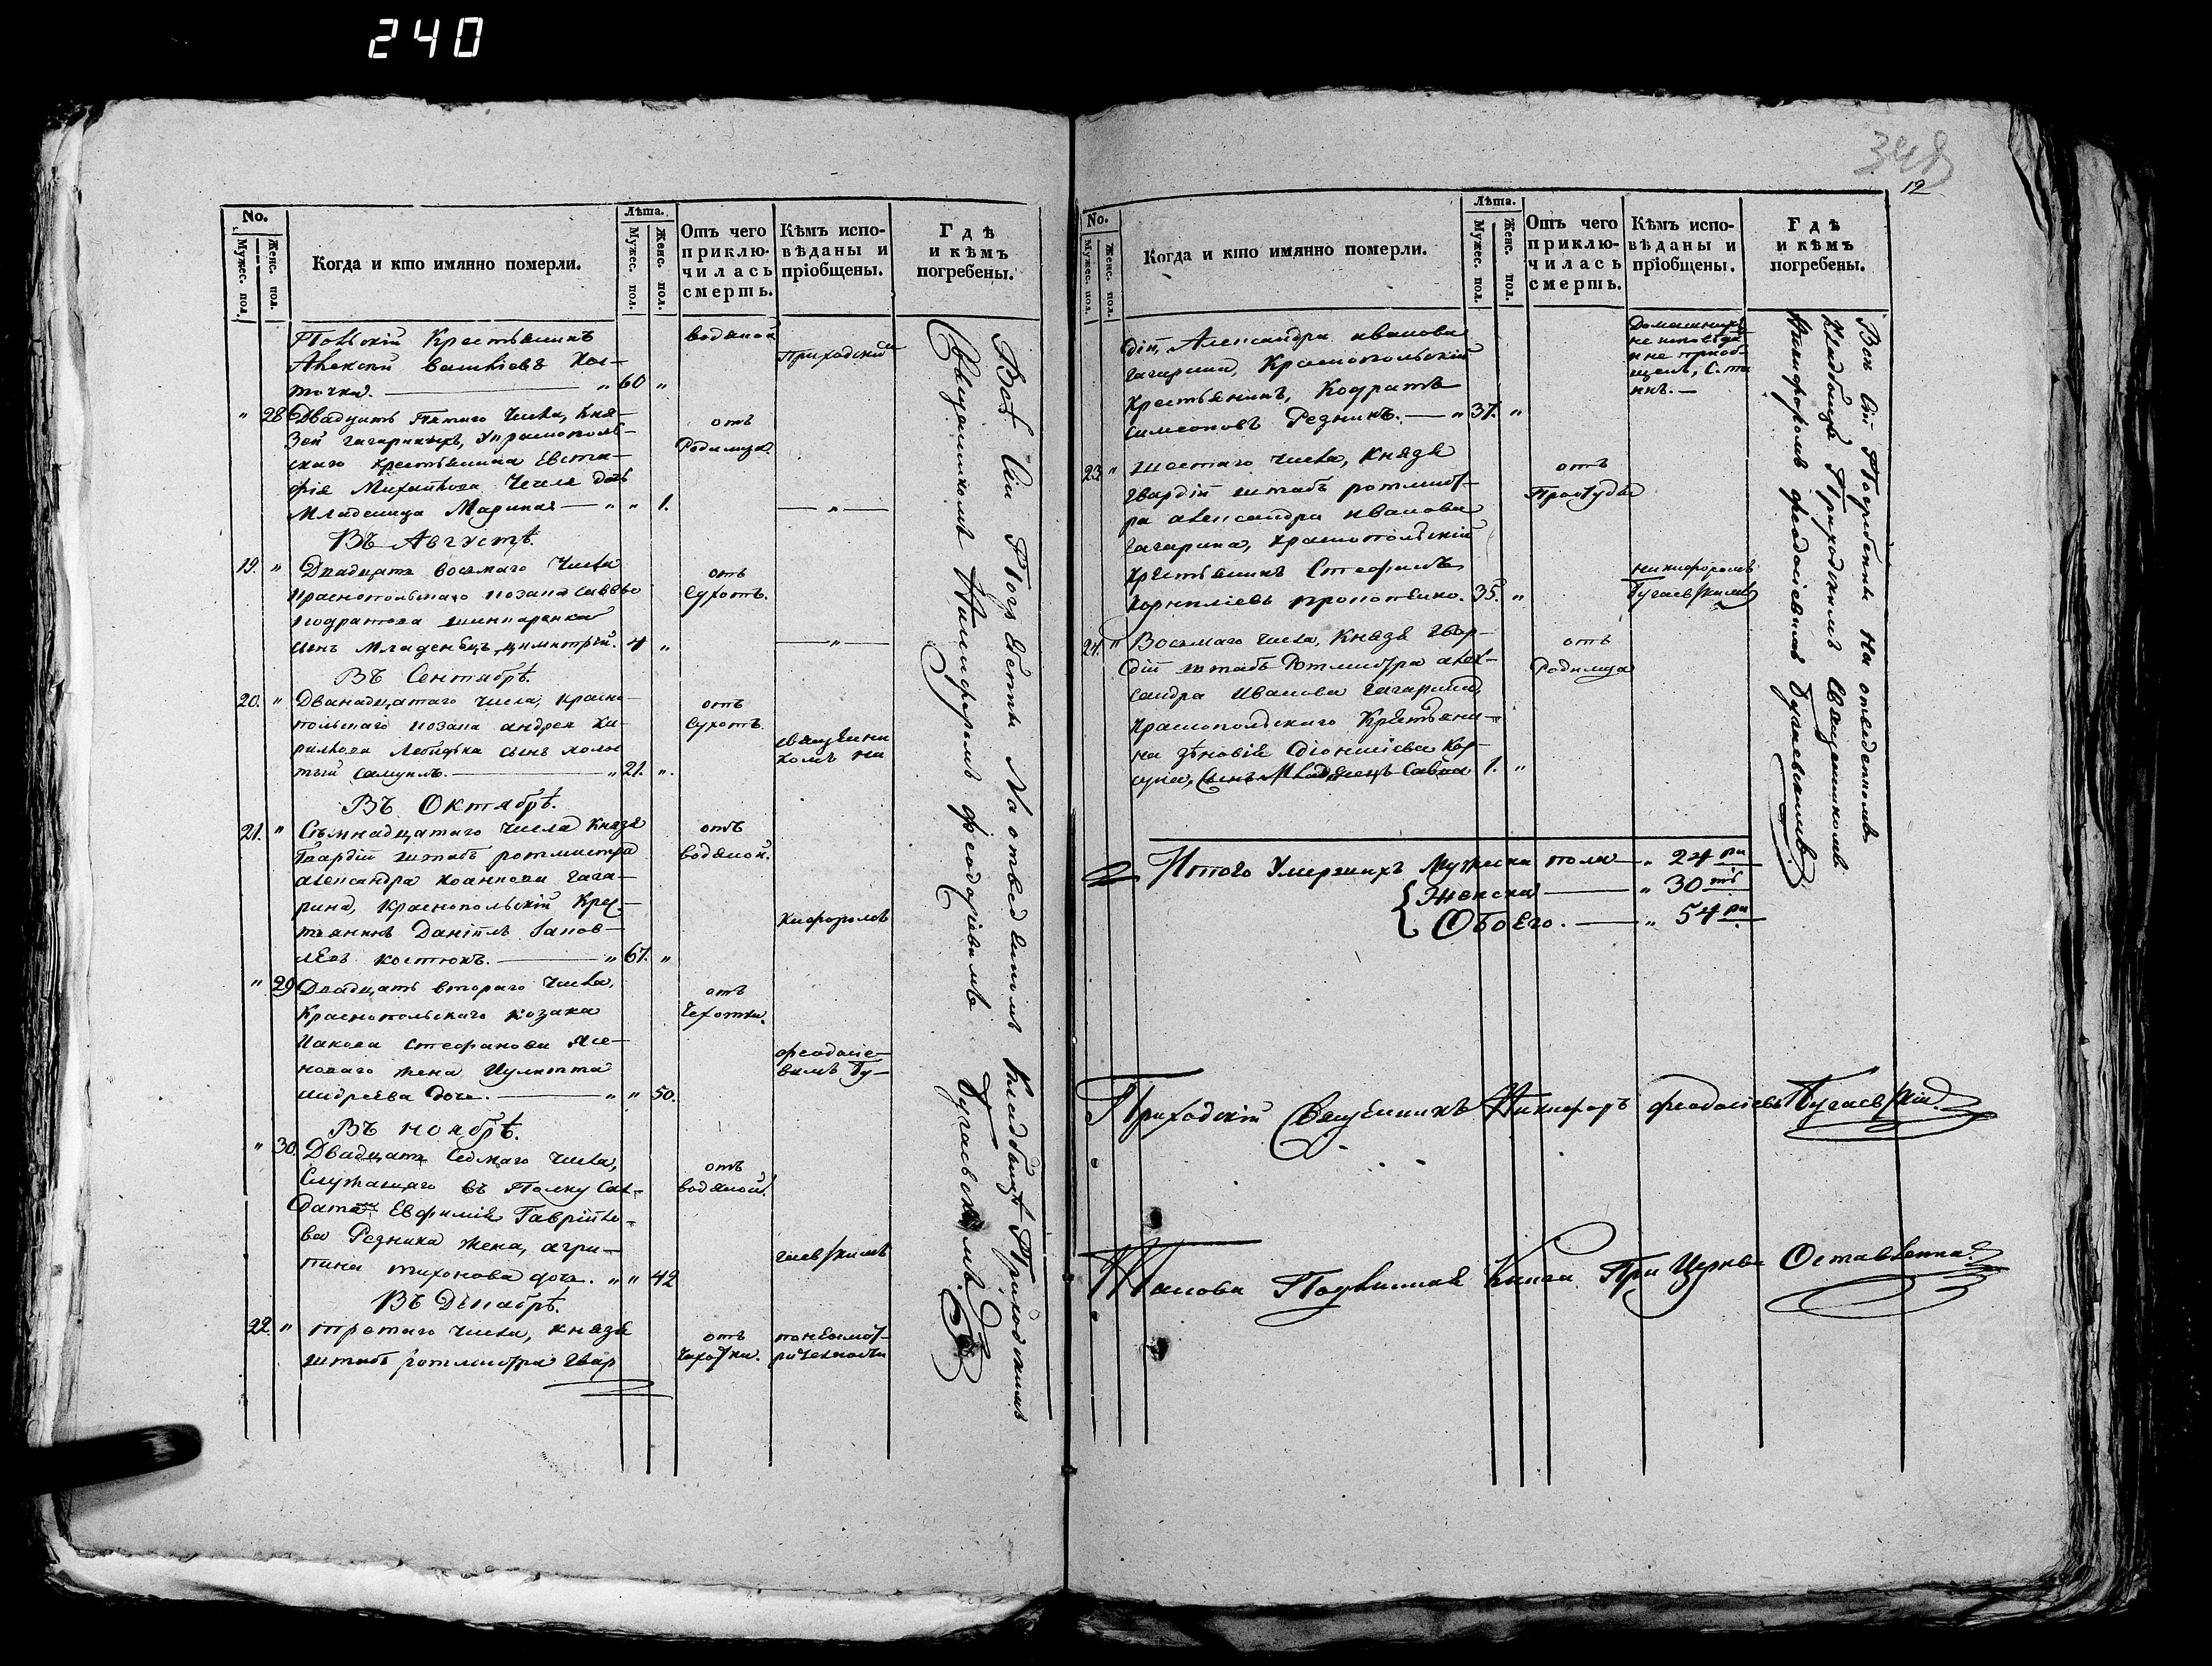 240
348
12
No.
Мужес. пол.
Женс. пол.
Когда и кто имянно померли.
Лѣта.
Мужес. пол.
Женс. пол.
Отъ чего приклю-
чилась
смерть.
Кѣмъ испо-
вѣданы и
пріобщены.
Гдѣ
и кѣмъ
погребены.
Крестьянинъ
60 "
водяной
Приходскимъ
" 28 Двадцать Пятаго Числа, Кня-
зей Гагариныхъ,
скаго крестьянина Евста-
фія Михайлова дочь
Младеница Марина — " " 1.
отъ
Родимца
— " —
Въ Августѣ.
19. " Двадцать восьмаго Числа
Краснопольскаго козака Саввы
Кодратова
сынъ Младенецъ Димитрій. 4 "
отъ
Сухотъ.
— " —
Въ Сентябрѣ.
20. " Дванадцатаго Числа, Красно-
польскаго козака Андрея Ки-
рилова сынъ холос
тый Самуилъ. — " 21. ".
отъ
Сухотъ
священни
комъ Ни
Въ Октябрѣ.
21. " Съмнадцатаго Числа Князя
Гвардіи штабъ ротмистра
Александра Иоаннова Гага-
рина, Краснопольскій Крес-
тянинъ Даніилъ Іаков-
левъ Костюкъ. — " 67. "
отъ
водяной.
кифоромъ
" 29 Двадцать втораго Числа,
Краснопольскаго козака
Иакова Стефанова Ясе-
новаго жена Иулиттa
Андреева дочь. — " " 50.
отъ
Чехотки.
феодосіе-
вимъ Бу-
Въ Ноябрѣ.
" 30. Двадцать Седмаго Числа,
Служащаго въ Полку Сал-
дата Евфимія Гаврійло-
ва Резника жена, Агри-
пина Тихонова дочь. " " 42
отъ
водяной.
гаевскимъ
Въ Декабрѣ.
22. " третаго Числа, Князя
штабъ ротмистра Гвар
отъ
чахотки.
Всѣ Сіи Погребены На отведенномъ Кладбищѣ Приходскимъ
Священникомъ Никифоромъ феодосіевимъ Бугаевскимъ.
No.
Мужес. пол.
Женс. пол.
Когда и кто имянно померли.
Лѣта.
Мужес. пол.
Женс. пол.
Отъ чего
приклю-
чилась
смерть.
Кѣмъ испо-
вѣданы и
пріобщены.
Гдѣ
и кѣмъ
погребены.
діи, Александра Иванова
Гагарина, Краснопольскій
Крестьянинъ, Кодратъ
Симеоновъ Резникъ. — " 37. "
Домашнихъ
не исповѣда
и не пріоб-
щенъ,
23 " шестаго числа, Князя
Гвардіи штабъ ротмист-
ра Александра Иванова
Гагарина, Краснопольскій
Крестьянинъ Стефанъ
Корниліевъ Прокопенко. 35. "
отъ
Простуды
Никифоромъ
Бугаевскимъ
24. " Восьмаго числа, Князя Гвар-
діи штабъ Ротмистра Алек-
сандра Иванова Гагарина,
Краснопольскаго Крестьяни-
на Зѣновія Діонисіева Кор-
суна, Сынъ Младенецъ Савва 1. "
отъ
Родимца
Всѣ Сіи Погребены На отведенномъ
Кладбищѣ Приходскимъ Священникомъ
Никифоромъ феодосіевимъ Бугаевскимъ.
Итого Умершихъ Мужеска пола — " 24 ри
Женска — " 30 ть
Обоего. — " 54 ри
Приходскій Священникъ Никифоръ феодосіевъ Бугаевскій.
Такова Подлинная Книга При Церкви Оставленна.